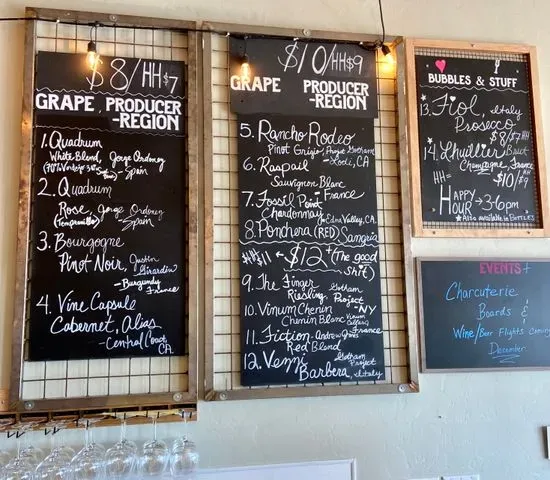 $8/HH$7
GRAPE PRODUCER
-REGION
1. Quadrum
White Blend, Jorge Ordonez
- Spain
2. Quadrum
Rose Jorge Ordonez
(Tempranillo) - Spain
3. Bourgogne
Pinot Noir, Justin
Girardin
- Burgundy
France
4. Vine Capsule
Cabernet, Alias
- Central Coast,
CA
$10/HH$9
GRAPE PRODUCER
-REGION
5. Rancho Rodeo
Pinot Grigio,
- Lodi, CA
6. Raspail
Sauvignon Blanc
- France
7. Fossil Point
Chardonnay - Edna Valley, CA.
8. Ponchera (RED) Sangria
HH $11 $12+ (The good
shit)
9. The Finger
Riesling Gotham
Project
- NY
10. Vinum Chenin
Chenin Blanc Vinum
Cellars
11. Fiction - Andrew Jones
Red Blend
12. Venni Gotham
Project
Barbera, Italy
BUBBLES & STUFF
13. Fiol, Italy
Prosecco
$8/$7 HH
14. Lhuillier Brut
Champagne, France
HH= $10/$9
HAPPY
HOUR → 3-6pm
*Also available in BOTTLES
EVENTS+
Charcuterie
Boards &
Wine/Beer Flights Coming
December